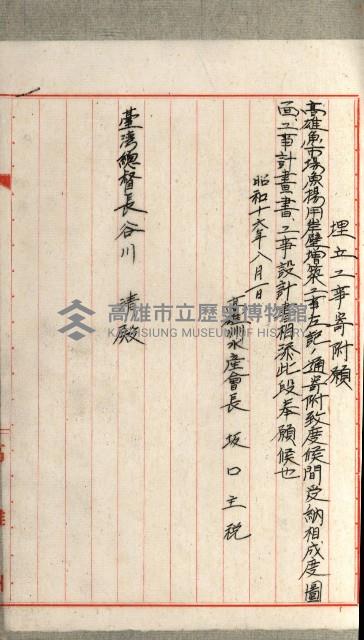 埋立工事寄附願
高雄魚市場魚揚用岸壁増築工事左記ノ通寄附致度候間受納相成度圖
面、工事計畫書、工事設計書相添此段奉願候也
昭和十六年八月一日
高雄州水産會長 坂口主税
臺湾總督長谷川 清殿
高雄市立歷史博物館
KAOHSIUNG MUSEUM OF HISTORY